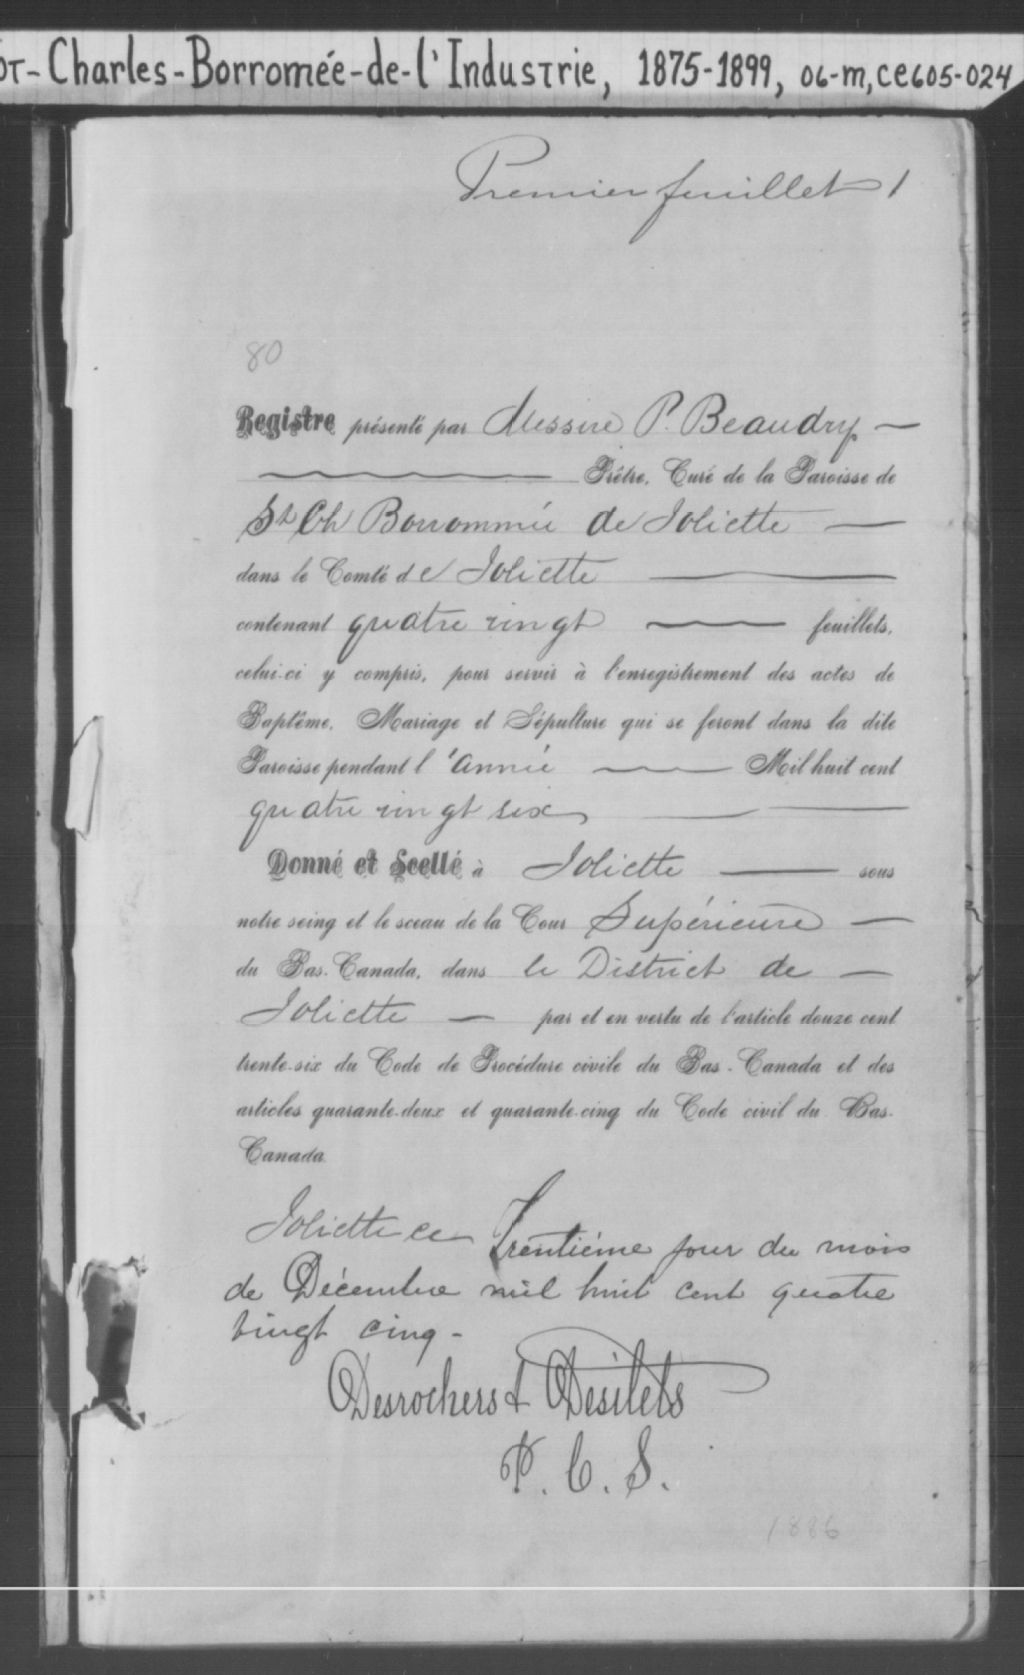 OT-Charles-Borromée-de-l'Industrie, 1875-1899, 06-m, CE605-024
Premier feuillet 1
80
Registre présenté par Messire P. Beaudry
Prêtre, Curé de la Paroisse de
St Ch Borrommée de Joliette
dans le Comté de Joliette
contenant quatre vingt feuillets,
celui-ci y compris, pour servir à l'enregistrement des actes de
Baptême, Mariage et Sépulture qui se feront dans la dite
Paroisse pendant l'année Mil huit cent
quatre vingt six
Donné et Scellé à Joliette sous
notre seing et le sceau de la Cour Supérieure
du Bas-Canada, dans le District de
Joliette par et en vertu de l'article douze cent
trente-six du Code de Procédure civile du Bas-Canada et des
articles quarante-deux et quarante-cinq du Code civil du Bas-
Canada
Joliette ce Trentième jour du mois
de Décembre mil huit cent quatre
vingt cinq -
Desrochers & Desilets
P. C. S.
1886